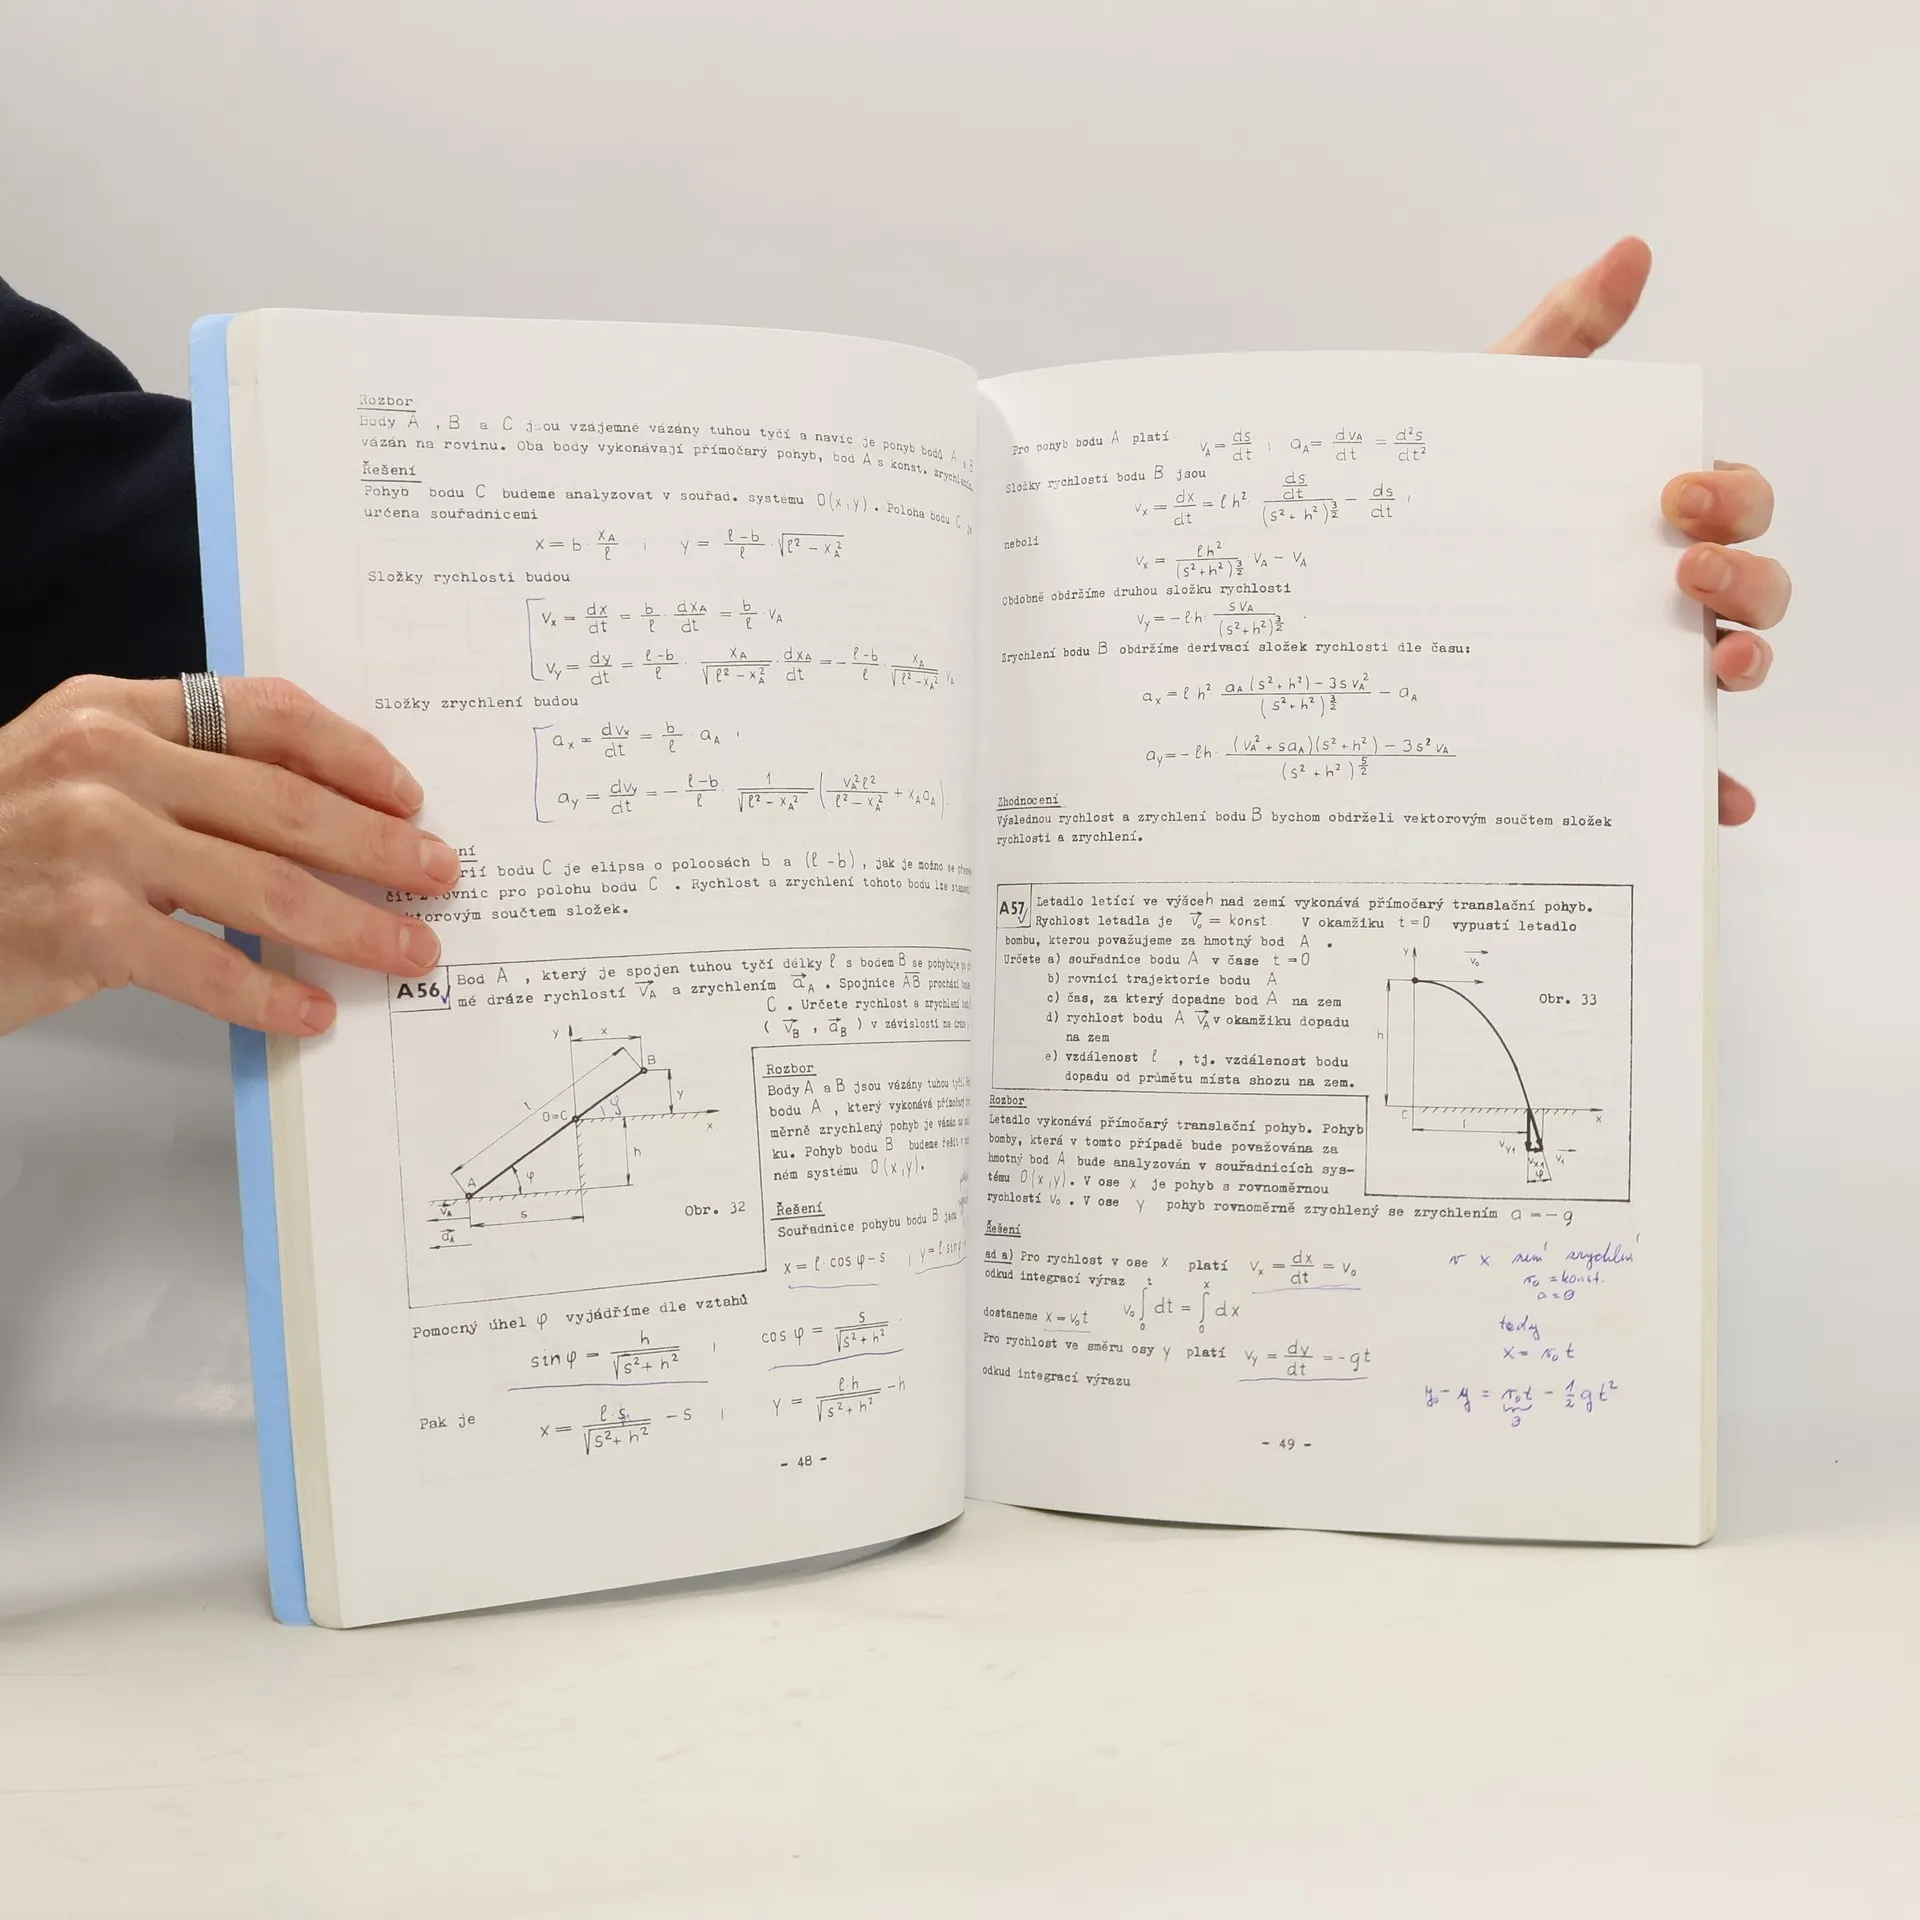 Rozbor
Body A , B a C jsou vzájemné vázány tuhou tyčí a navíc je pohyb bodů A a B
vázán na rovinu. Oba body vykonávají přímočarý pohyb, bod A s konst. zrychlením.
Řešení
Pohyb bodu C budeme analyzovat v souřad. systému O(x,y). Poloha bodu C je
určena souřadnicemi
x = b · x_A/ℓ ; y = (ℓ-b)/ℓ · √(ℓ² - x_A²)
Složky rychlosti budou
v_x = dx/dt = b/ℓ · dx_A/dt = b/ℓ · v_A
v_y = dy/dt = (ℓ-b)/ℓ · x_A/√(ℓ² - x_A²) · dx_A/dt = - (ℓ-b)/ℓ · x_A/√(ℓ² - x_A²) v_A
Složky zrychlení budou
a_x = dv_x/dt = b/ℓ · a_A ,
a_y = dv_y/dt = - (ℓ-b)/ℓ · 1/√(ℓ² - x_A²) (v_A²ℓ²/(ℓ² - x_A²) + x_A a_A).
ní
rií bodu C je elipsa o poloosách b a (ℓ-b), jak je možno se
čít z rovnic pro polohu bodu C . Rychlost a zrychlení tohoto bodu lze
ktorovým součtem složek.
A56
Bod A , který je spojen tuhou tyčí délky ℓ s bodem B se pohybuje po
mé dráze rychlostí v_A a zrychlením a_A . Spojnice AB prochází
C . Určete rychlost a zrychlení
( v_B , a_B ) v závislosti na dráze
y x B ℓ y O≡C φ x h A φ v_A s a_A
Obr. 32
Rozbor
Body A a B jsou vázány tuhou tyčí.
bodu A , který vykonává přímočarý
měrně zrychlený pohyb je vázán na
ku. Pohyb bodu B budeme řešit v
ném systému O(x,y).
Řešení
Souřadnice pohybu bodu B jsou
x = ℓ·cos φ - s , y = ℓ·sin φ
Pomocný úhel φ vyjádříme dle vztahů
sin φ = h/√(s² + h²) , cos φ = s/√(s² + h²) .
Pak je x = ℓ·s/√(s² + h²) - s , y = ℓ·h/√(s² + h²) - h
- 48 -
Pro pohyb bodu A platí v_A = ds/dt ; a_A = dv_A/dt = d²s/dt²
Složky rychlosti bodu B jsou
v_x = dx/dt = ℓh² · (ds/dt)/(s² + h²)^(3/2) - ds/dt ,
neboli
v_x = ℓh²/(s² + h²)^(3/2) · v_A - v_A
Obdobně obdržíme druhou složku rychlosti
v_y = - ℓ·h · s v_A/(s² + h²)^(3/2) .
Zrychlení bodu B obdržíme derivací složek rychlosti dle času:
a_x = ℓ h² · (a_A (s² + h²) - 3s v_A²)/(s² + h²)^(3/2) - a_A
a_y = - ℓh · ((v_A² + s a_A)(s² + h²) - 3s² v_A)/(s² + h²)^(5/2)
Zhodnocení
Výslednou rychlost a zrychlení bodu B bychom obdrželi vektorovým součtem složek
rychlosti a zrychlení.
A57
Letadlo letící ve výšce h nad zemí vykonává přímočarý translační pohyb.
Rychlost letadla je v₀ = konst. V okamžiku t = 0 vypustí letadlo
bombu, kterou považujeme za hmotný bod A .
Určete a) souřadnice bodu A v čase t = 0
b) rovnici trajektorie bodu A
c) čas, za který dopadne bod A na zem
d) rychlost bodu A v_A v okamžiku dopadu
na zem
e) vzdálenost ℓ , tj. vzdálenost bodu
dopadu od průmětu místa shozu na zem.
y v₀ h C l x v_y1 v_x1 v₁ φ
Obr. 33
Rozbor
Letadlo vykonává přímočarý translační pohyb. Pohyb
bomby, která v tomto případě bude považována za
hmotný bod A bude analyzován v souřadnicích sys-
tému O(x,y). V ose x je pohyb s rovnoměrnou
rychlostí v₀ . V ose y pohyb rovnoměrně zrychlený se zrychlením a = - g
Řešení
ad a) Pro rychlost v ose x platí v_x = dx/dt = v₀
odkud integrací výraz v₀ ∫₀ᵗ dt = ∫₀ˣ dx
dostaneme x = v₀t
Pro rychlost ve směru osy y platí v_y = dy/dt = - gt
odkud integrací výrazu
v x není zrychlení
v₀ = konst.
a = 0
tedy
x = v₀ t
y₀ - y = v₀t - ½ g t²
0
- 49 -